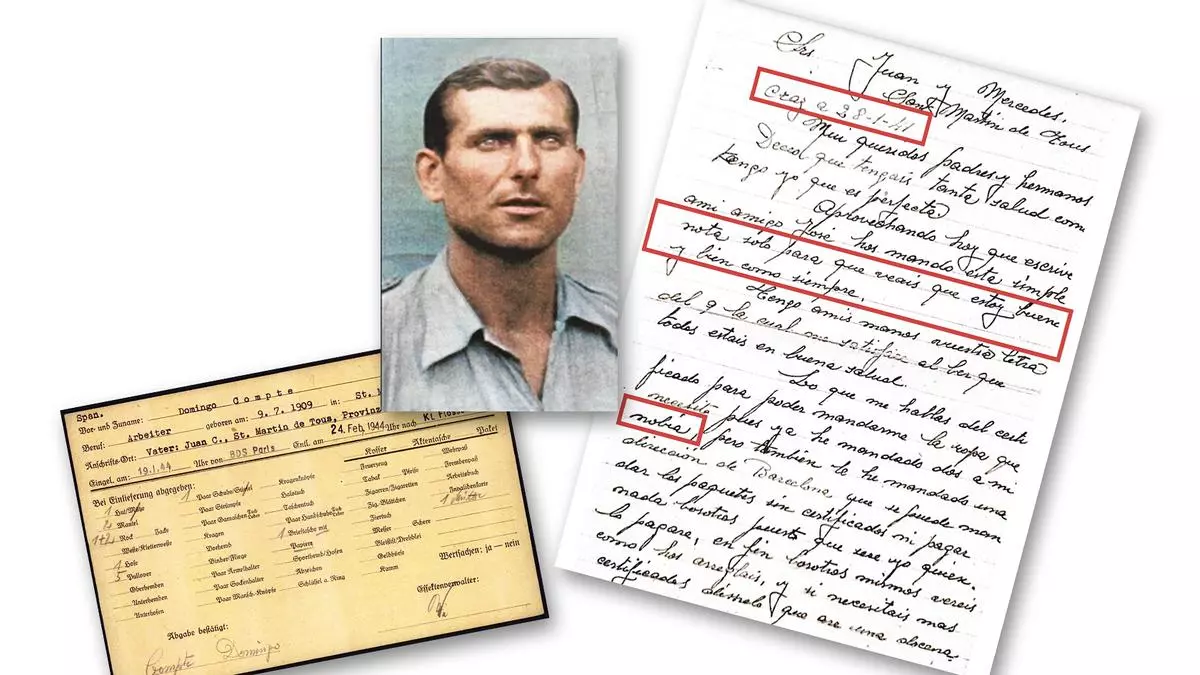 Span.
Vor- und Zuname: Domingo Compte
Beruf: Arbeiter geboren am: 9.7.1909 in: St. M
Anschrifts-Ort: Vater: Juan C., St. Martin de Tous, Provin
Eingel. am: 19.1.44 Uhr von BDS Paris Entl. am 24. Feb. 1944 Uhr nach Kl Flosse
Bei Einlieferung abgegeben: Koffer Aktentasche Paket
1 Hut/Mütze 1 Paar Schuhe/Stiefel Kragenknöpfe Feuerzeug Wehrpaß
Mantel Paar Strümpfe Halstuch Tabak Pfeife Fremdenpaß
Rock Jacke Paar Gamaschen Taschentuch Zigarren/Zigaretten Arbeitsbuch
Weste/Kletterweste Kragen Paar Handschuhe Zig.-Blättchen Invalidenkarte
1 Hose Vorhemd 1 Brieftasche mit Feuerbuch
5 Pullover Binder/Fliege Papiere Messer Schere
Oberhemden Paar Ärmelhalter Sporthemd/Hosen Bleistift/Drehblei
Unterhemden Paar Sockenhalter Abzeichen Geldbörse Wertsachen: ja — nein
Unterhosen Paar Mansch.-Knöpfe Schlüssel a. Ring Kamm
Abgabe bestätigt: Effektenverwalter:
Compte Domingo
Srs Juan y Mercedes.
Sant Martin de Tous
Graz a 28-1-41
Mui queridos padres y hermanos
Deceo que tengais tanta salud com
tengo yo que es perfecta
Aprovechando hoy que escrive
ami amigo José hos mando esta simple
nota solo para que veais que estoy buene
y bien como siempre.
Tengo amis manos vuestra letra
del 9 la cual me satisfice al ber que
todos estais en buena salud.
Lo que me hablas del certi
ficado para poder mandarme la ropa que
necesito pues ya he mandado dos a mi
nobia, pero tambien le he mandado una
dirección de Barcelona, que si puede man
dar los paquetes sin certificados ni pagar
nada bosotros puesto que sere yo quien
lo pagare, en fin bosotros mismos vereis
como hos arreglais, y si necesitais mas
certificados que are una docena